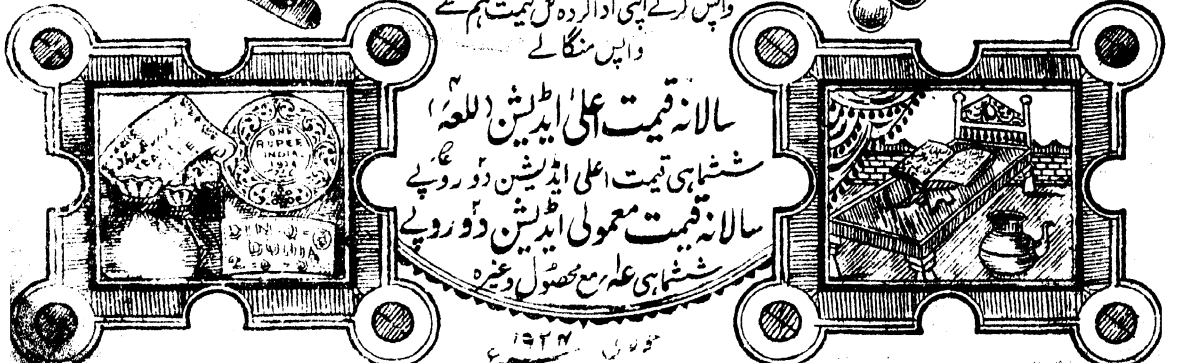 واپس کرکے اپنی ادا کردہ کل قیمت ہم سے
واپس منگالے
سالانہ قیمت اعلیٰ ایڈیشن (للعہ)
ششماہی قیمت اعلی ایڈیشن دو روپے
سالانہ قیمت معمولی ایڈیشن دو روپے
ششماہی عہ مع محصول وغیرہ
ONE
RUPEE
INDIA
۱۹۲۴ء